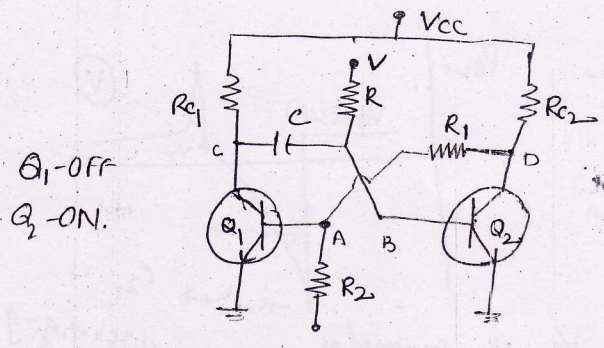 VCC
V
RC1
C
R
R1
RC2
C
D
Q1-OFF
Q2-ON.
Q1
A
B
Q2
R2